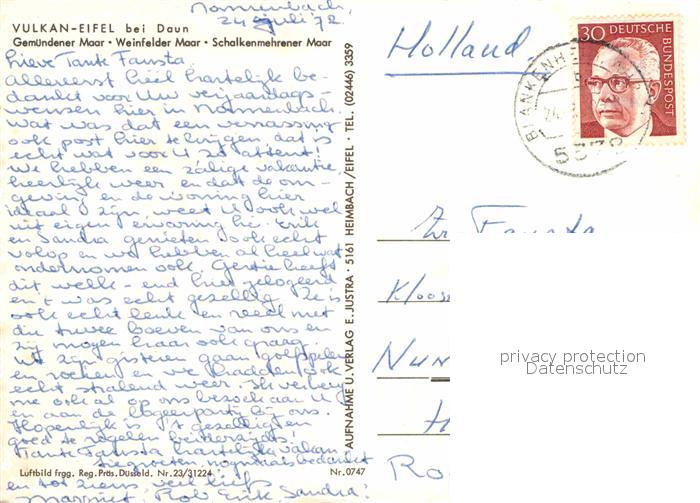 Nonnenbach,
24 juli 72
VULKAN-EIFEL bei Daun
Gemündener Maar • Weinfelder Maar • Schalkenmehrener Maar
Lieve Tante Fausta.
Allereerst heel hartelijk be-
dankt voor Uw verjaardags-
wensen hier in Nonnenbach.
Wat was dat een verrassing
ook post hier te krijgen, dat is
echt wat voor U zo attent!
We hebben een zalige vakantie,
heerlijk weer en dat de om-
geving en de woning hier
ideaal zijn, weet U ook wel
uit eigen ervaring hè. Erik
en Sandra genieten ook echt
volop en we hebben al heel wat
ondernomen ook. Gertie heeft
dit week-end hier gelogeerd
en 't was echt gezellig. Ze is
ook echt leuk en veel met
die twee boeven van ons en
zij mogen haar ook graag.
We zijn gisteren gaan
en en we hadden ook
echt stralend weer. Ik verheug
me ook al op ons bezoek aan U
en aan de logeerpartij bij ons.
Hopenlijk is 't gezellig en
goed te regelen
Tante Fausta hartelijke vakan-
tiegroeten nogmaals bedankt
en tot ziens veel liefs
Marriet Rob Erik Sandra!
Luftbild frgg. Reg. Präs. Düsseld. Nr. 23/31224
Nr. 0747
AUFNAHME U. VERLAG E. JUSTRA • 5161 HEIMBACH/EIFEL • TEL. (02446) 3359
Holland.
30 DEUTSCHE BUNDESPOST
BLANKENH
24.
Zr Fausta
Kloos
Nun
Ro
privacy protection
Datenschutz